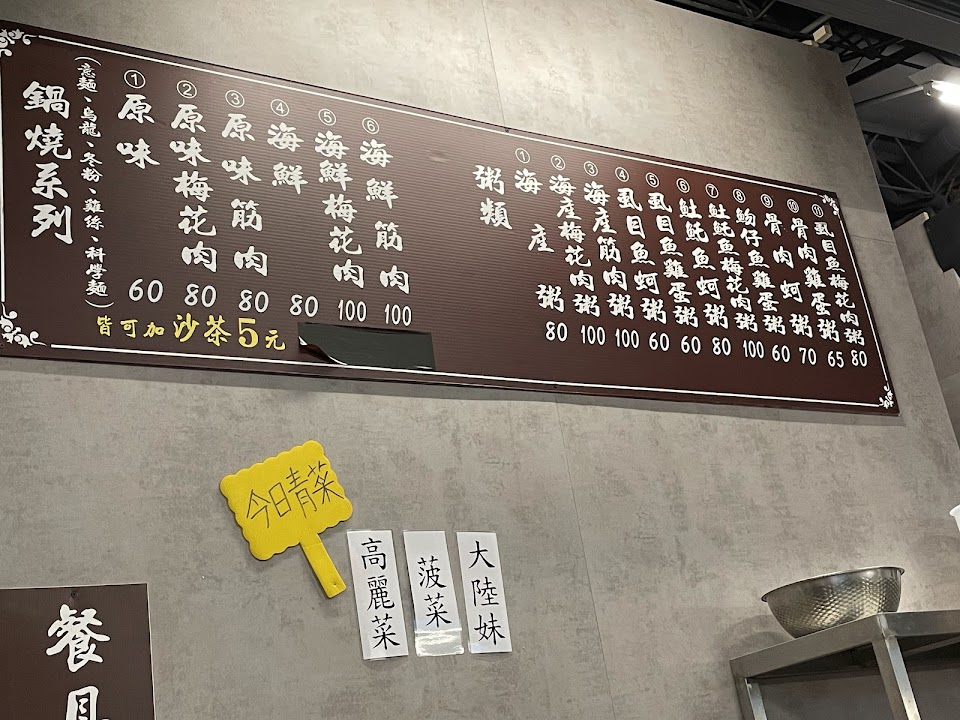 鍋燒系列
(意麵、烏龍、冬粉、雞絲、科學麵)
①原味 60
②原味梅花肉 80
③原味筋肉 80
④海鮮 80
⑤海鮮梅花肉 100
⑥海鮮筋肉 100
皆可加沙茶5元
粥類
①海產粥 80
②海產梅花肉粥 100
③海產筋肉粥 100
④虱目魚蚵粥 60
⑤虱目魚雞蛋粥 60
⑥魠魚蚵粥 80
⑦魠魚梅花肉粥 100
⑧魩仔魚雞蛋粥 60
⑨骨肉蚵粥 70
⑩骨肉雞蛋粥 65
⑪虱目魚梅花肉粥 80
今日青菜
高麗菜
菠菜
大陸妹
餐具